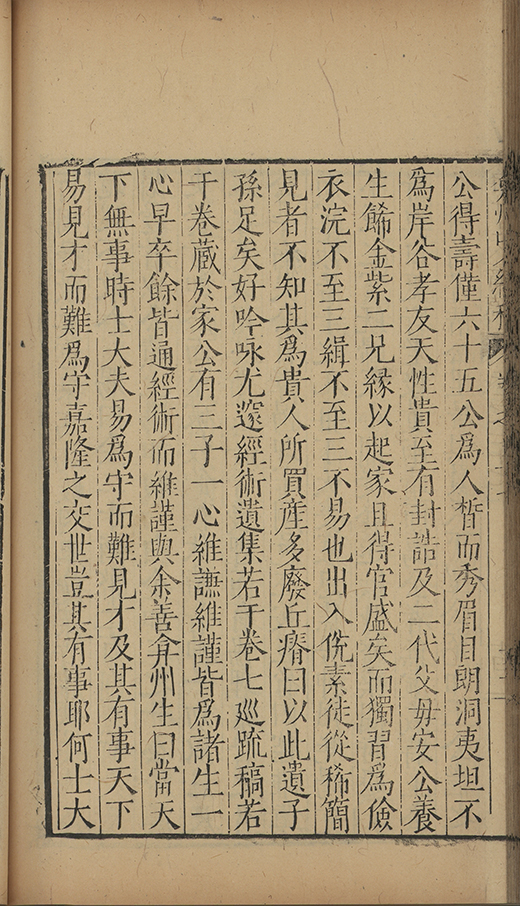 公得壽僅六十五公爲人晳而秀眉目朗洞夷坦不
爲岸谷孝友天性貴至有封誥及二代父毋安公養
生餙金紫二兄緣以起家且得官盛矣而獨習爲儉
衣浣不至三緝不至三不易也出入侻素徒從稀簡
見者不知其爲貴人所買産多廢丘瘠曰以此遺子
孫足矣好吟咏尤邃經術遺集若干卷七巡疏稿若
干卷藏於家公有三子一心維譕維謹皆爲諸生一
心早卒餘皆通經術而維謹與余善弇州生曰當天
下無事時士大夫易爲守而難見才及其有事天下
易見才而難爲守嘉隆之交世豈其有事耶何士大